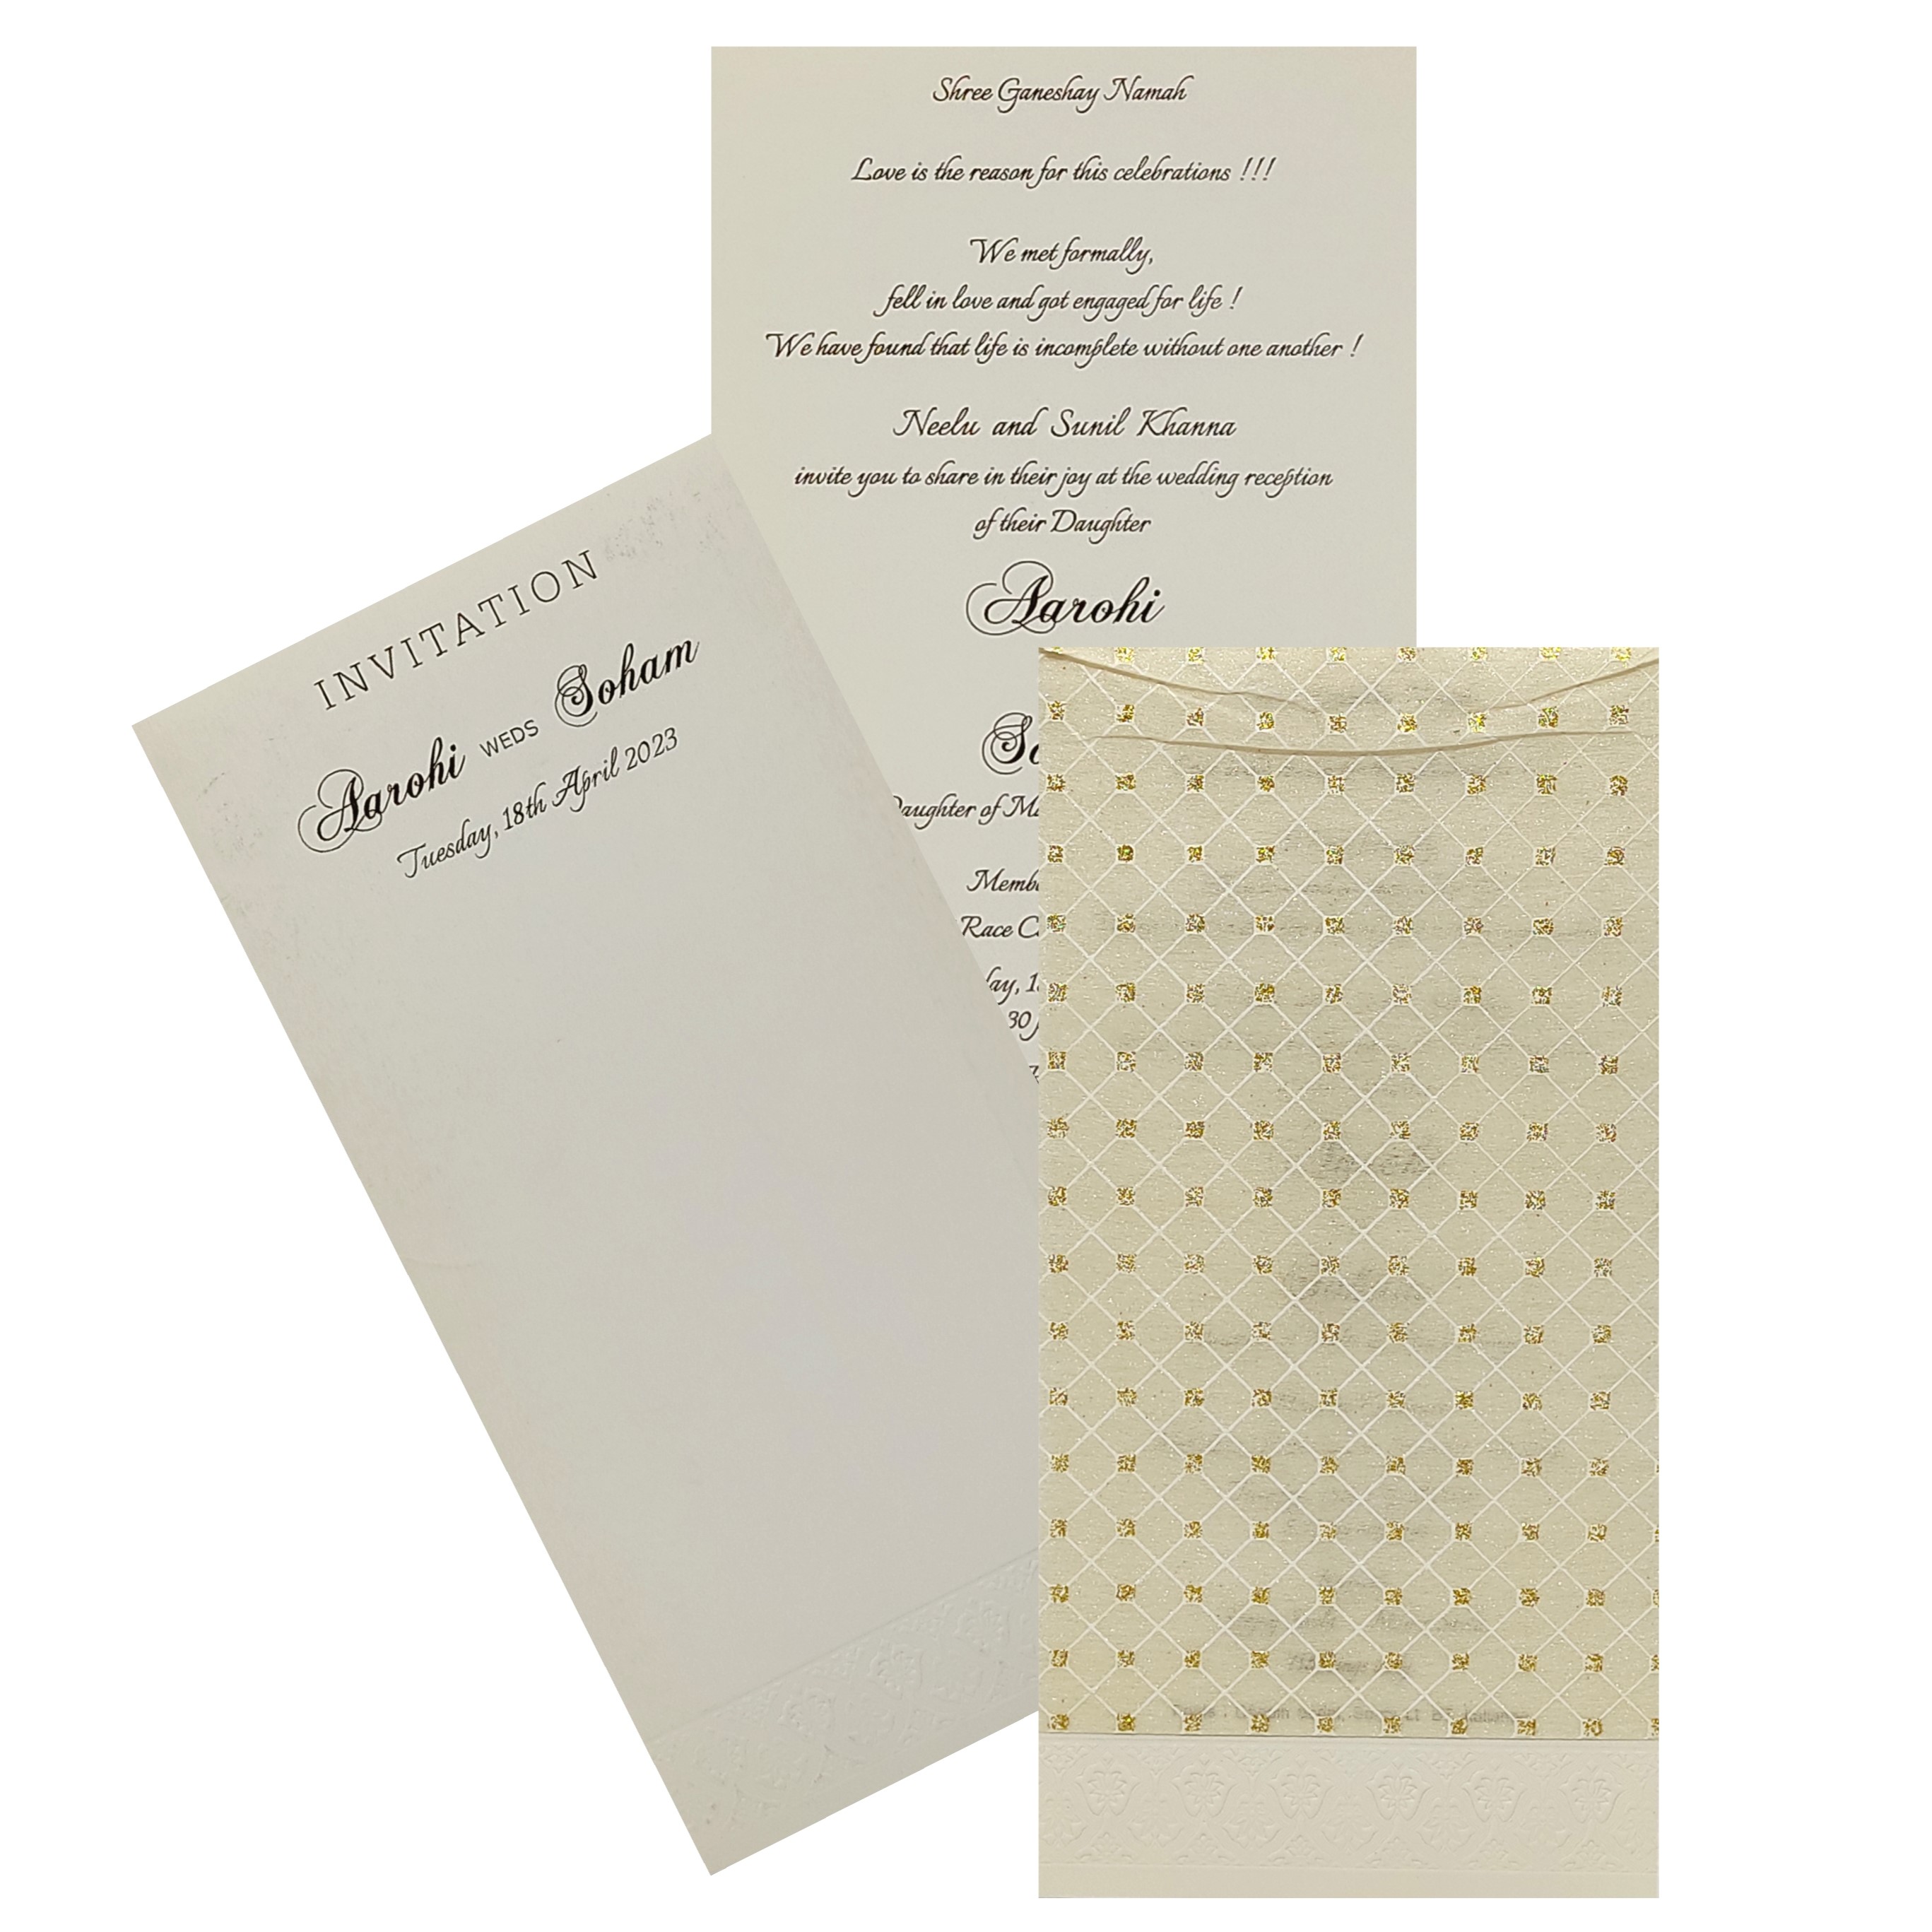 Shree Ganeshay Namah
Love is the reason for this celebrations !!!
We met formally,
fell in love and got engaged for life !
We have found that life is incomplete without one another !
Neelu and Sunil Khanna
invite you to share in their joy at the wedding reception
of their Daughter
Aarohi
Daughter of
Race
30
INVITATION
Aarohi WEDS Soham
Tuesday, 18th April 2023